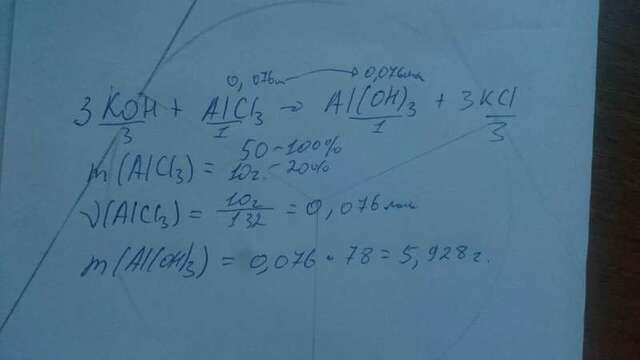 0,076м → 0,076моль
3KOH + AlCl₃ → Al(OH)₃ + 3KCl
3 1 1 3
50 - 100%
m(AlCl₃) = 10г. - 20%
ν(AlCl₃) = 10г/132 = 0,076 моль
m(Al(OH)₃) = 0,076 · 78 = 5,928 г.